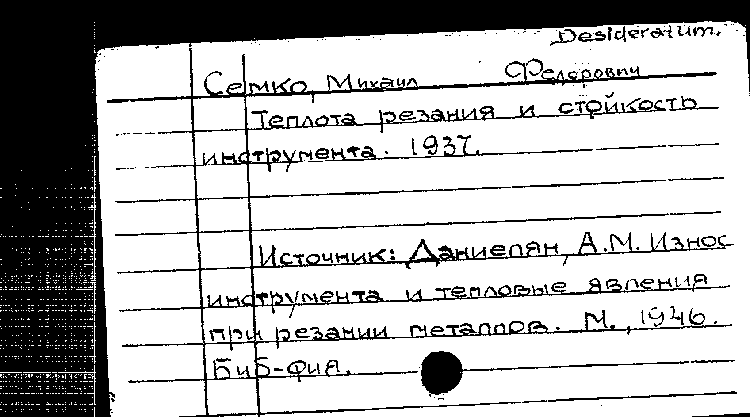 Desideratum.
Семко, Михаил Федорович
Теплота резания и стойкость
инструмента. 1937.
Источник: Даниелян, А.М. Износ
инструмента и тепловые явления
при резании металлов. М., 1946.
Биб-фия.